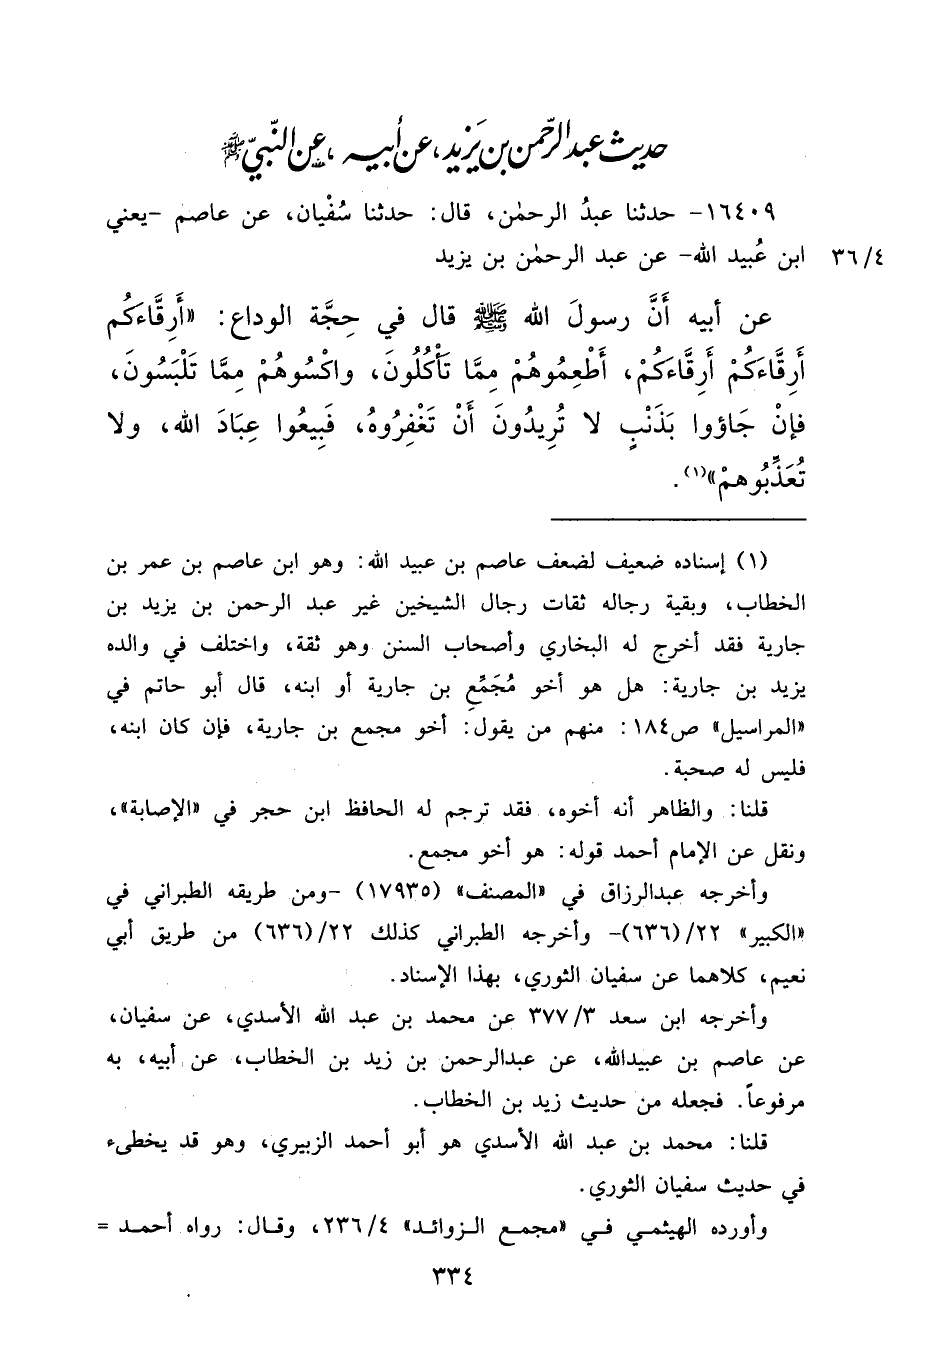 حديث عبد الرحمن بن يَزيد، عن أبيه، عن النّبيّ ﷺ
١٦٤٠٩- حدثنا عبدُ الرحمٰن، قال: حدثنا سُفْيان، عن عاصم -يعني
ابن عُبيد الله- عن عبد الرحمٰن بن يزيد
٣٦/٤
عن أبيه أَنَّ رسولَ الله ﷺ قال في حِجَّة الوداع: «أَرِقَّاءَكُم
أَرِقَّاءَكُمْ أَرِقَّاءَكُمْ، أَطْعِمُوهُمْ مِمَّا تَأْكُلُونَ، واكْسُوهُمْ مِمَّا تَلْبَسُونَ،
فإنْ جَاؤوا بَذَنْبٍ لا تُرِيدُونَ أَنْ تَغْفِرُوهُ، فَبِيعُوا عِبَادَ الله، ولا
تُعَذِّبُوهمْ»(١).
(١) إسناده ضعيف لضعف عاصم بن عبيد الله: وهو ابن عاصم بن عمر بن
الخطاب، وبقية رجاله ثقات رجال الشيخين غير عبد الرحمن بن يزيد بن
جارية فقد أخرج له البخاري وأصحاب السنن وهو ثقة، واختلف في والده
يزيد بن جارية: هل هو أخو مُجَمِّعِ بن جارية أو ابنه، قال أبو حاتم في
«المراسيل» ص١٨٤: منهم من يقول: أخو مجمع بن جارية، فإن كان ابنه،
فليس له صحبة.
قلنا: والظاهر أنه أخوه، فقد ترجم له الحافظ ابن حجر في «الإصابة»،
ونقل عن الإمام أحمد قوله: هو أخو مجمع.
وأخرجه عبدالرزاق في «المصنف» (١٧٩٣٥) -ومن طريقه الطبراني في
«الكبير» ٢٢/(٦٣٦)- وأخرجه الطبراني كذلك ٢٢/(٦٣٦) من طريق أبي
نعيم، كلاهما عن سفيان الثوري، بهذا الإسناد.
وأخرجه ابن سعد ٣٧٧/٣ عن محمد بن عبد الله الأسدي، عن سفيان،
عن عاصم بن عبيدالله، عن عبدالرحمن بن زيد بن الخطاب، عن أبيه، به
مرفوعاً. فجعله من حديث زيد بن الخطاب.
قلنا: محمد بن عبد الله الأسدي هو أبو أحمد الزبيري، وهو قد يخطىء
في حديث سفيان الثوري.
وأورده الهيثمي في «مجمع الزوائد» ٢٣٦/٤، وقال: رواه أحمد =
٣٣٤